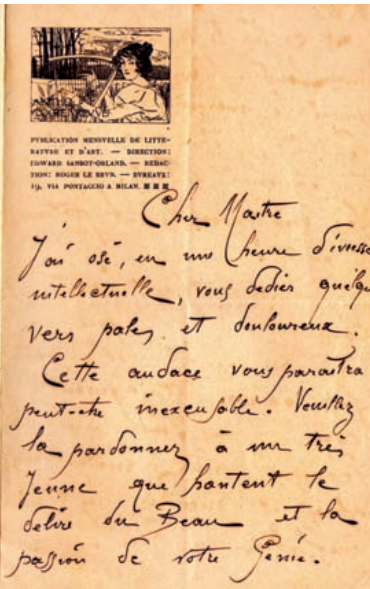 PVBLICATION MENSVELLE DE LITTE-
RATVRE ET D'ART. — DIRECTION:
EDWARD SANSOT-ORLAND. — REDAC-
TION: ROGER LE BRVN. — BVREAVX:
19, VIA PONTACCIO A MILAN.
Cher Maître
J'ai osé, en une heure d'ivresse
intellectuelle, vous dédier quelqu
vers pales et douloureux.
Cette audace vous paraitra
peut-etre inexcusable. Veuillez
la pardonner à un très
Jeune que hantent le
délire du Beau et la
passion de votre Genie.